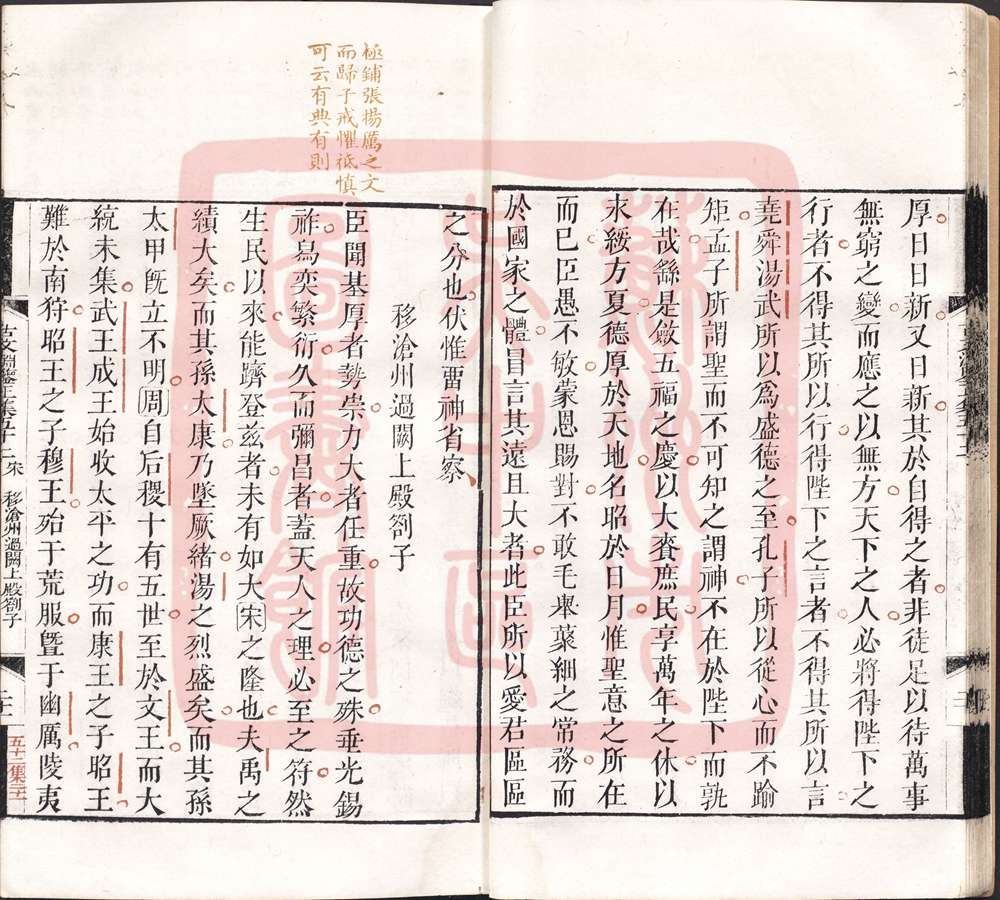 厚日日新又日新其於自得之者非徒足以待萬事
無窮之變而應之以無方天下之人必將得陛下之
行者不得其所以行得陛下之言者不得其所以言
堯舜湯武所以爲盛德之至孔子所以從心而不踰
矩孟子所謂聖而不可知之謂神不在於陛下而孰
在哉繇是斂五福之慶以大賚庶民享萬年之休以
永綏方夏德厚於天地名昭於日月惟聖意之所在
而已臣愚不敏蒙恩賜對不敢毛舉葉細之常務而
於國家之體冒言其遠且大者此臣所以愛君區區
之分也伏惟畱神省察
移滄州過闕上殿劄子
極鋪張揚厲之文
而歸于戒懼祗愼
可云有典有則
臣聞基厚者勢崇力大者任重故功德之殊垂光錫
祚舄奕繁衍久而彌昌者蓋天人之理必至之符然
生民以來能躋登茲者未有如大宋之隆也夫禹之
績大矣而其孫太康乃墜厥緒湯之烈盛矣而其孫
太甲旣立不明周自后稷十有五世至於文王而大
統未集武王成王始收太平之功而康王之子昭王
難於南狩昭王之子穆王殆于荒服曁于幽厲陵夷
古文淵鑒正集卷五十二 宋 移滄州過闕上殿劄子
蘇州市
吳中區
圖書館